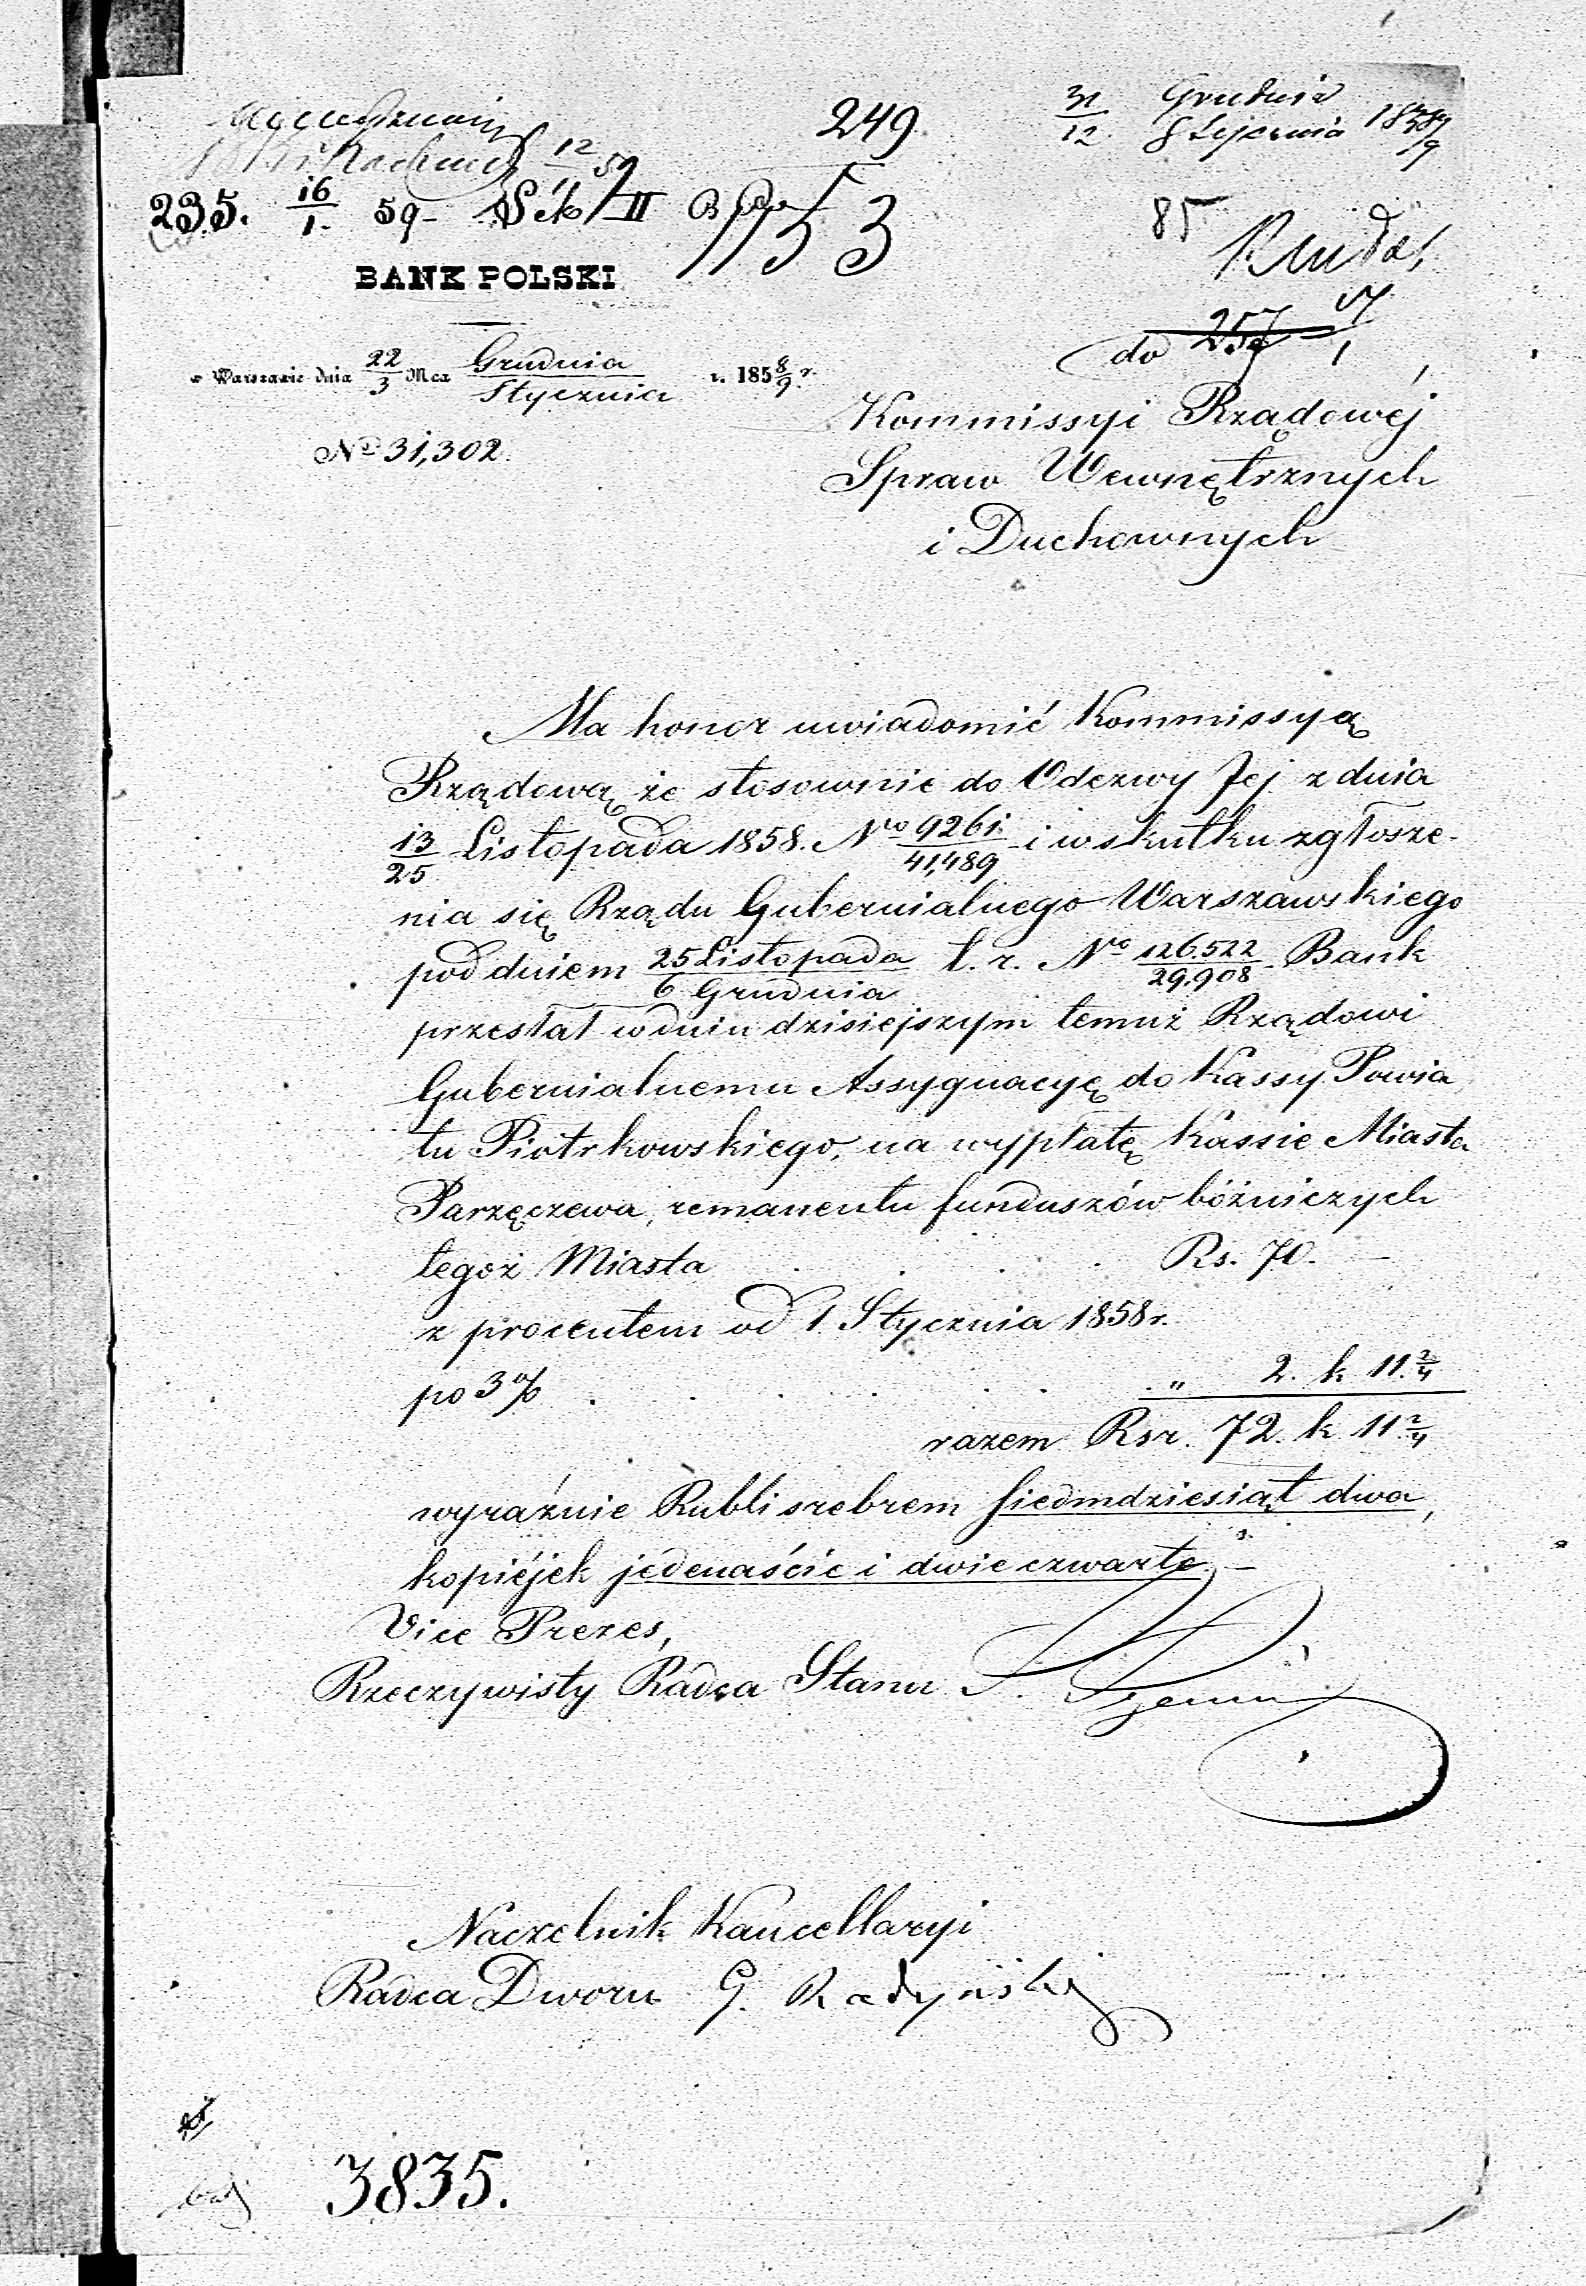 249
31/12 Grudnia
Stycznia 1858/9
235. 16/1 59 II
1153
85
BANK POLSKI
do 257 17/1
w Warszawie dnia 22/3 Mca Grudnia/Stycznia r. 1858/9 r.
Kommissyi Rządowéj
No 31,302.
Spraw Wewnętrznych
i Duchownych
Ma honor uwiadomić Kommissyą
Rządową, że stosownie do Odezwy Jej z dnia
13/25 Listopada 1858. No 9261/41,489 i w skutku zgłosze-
nia się Rządu Gubernialnego Warszawskiego
pod dniem 25 Listopada/6 Grudnia t. r. No 126.522/29.908 Bank
przesłał w dniu dzisiejszym temuż Rządowi
Gubernialnemu Assygnacyę do Kassy Powia
tu Piotrkowskiego, na wypłatę Kassie Miasta
Parzęczewa, remanentu funduszów bóżniczych
tegoż Miasta . . . . Rs. 70. —
z procentem od 1 Stycznia 1858 r.
po 3% . . . . . „ 2. k 11 2/4
razem Rsr. 72. k 11 2/4
wyraźnie Rubli srebrem siedmdziesiąt dwa,
kopiéjek jedenaście i dwie czwarte. —
Vice Prezes,
Rzeczywisty Radca Stanu
Naczelnik Kancellaryi
Radca Dworu G. Radyński
3835.